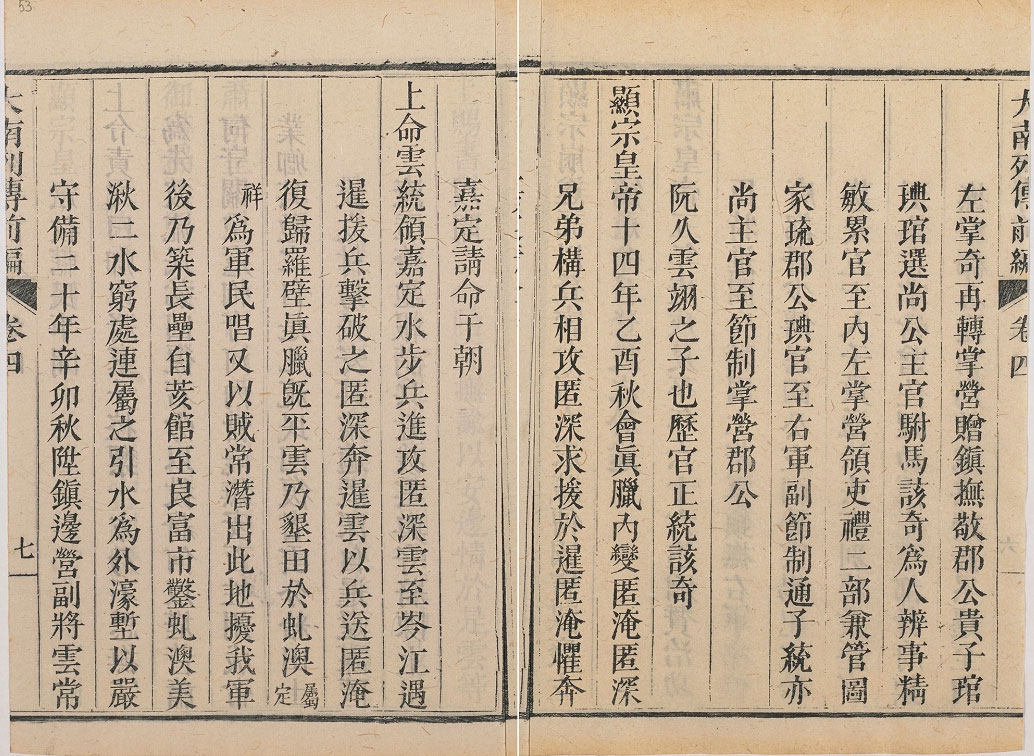 53
大南列傳前編 卷四
左掌奇再轉掌營贈鎮撫敬郡公貴子琯
琠琯選尚公主官駙馬該奇為人辨事精
敏累官至內左掌營領吏禮二部兼管圖
家琉郡公琠官至右軍副節制通子統亦
尚主官至節制掌營郡公
阮久雲翊之子也歷官正統該奇
顯宗皇帝十四年乙酉秋會眞臘內變匿淹匿深
兄弟構兵相攻匿深求援於暹匿淹懼奔
嘉定請命于朝
上命雲統領嘉定水步兵進攻匿深雲至岑江遇
暹援兵擊破之匿深奔暹雲以兵送匿淹
復歸羅壁眞臘旣平雲乃墾田於虬澳屬定
祥為軍民唱又以賊常潛出此地擾我軍
後乃築長壘自荄館至良富市鑿虬澳美
湫二水窮處連屬之引水為外濠塹以嚴
守備二十年辛卯秋陞鎮邊營副將雲常
大南列傳前編 卷四 七